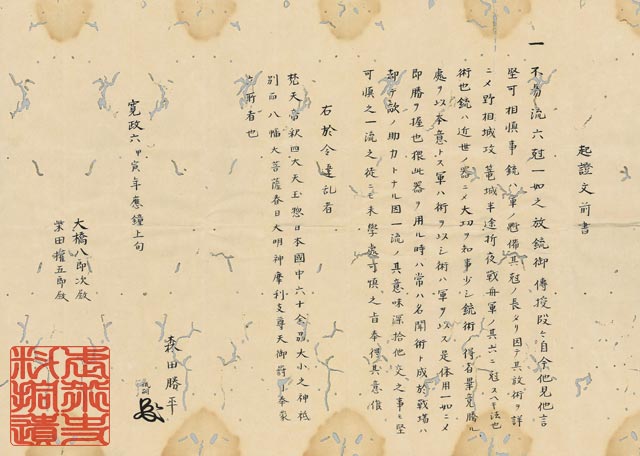 起證文前書
一 不易流六冠一如之放銃御傳授段々自余他見他言
堅可相慎事銃ハ軍ノ魁備其冠ノ長タリ因テ其放術ヲ詳
ニメ野相城攻篭城半途折夜戦舟軍ノ其六ニ冠スヘキ法也
術也銃ハ近世ノ器ニメ大切ヲ知事少シ銃術ノ得者畢意勝ル
處ヲ以本意トス軍ハ術ヲ以シ術ハ軍ヲ以ス是体用一如ニメ
即勝ヲ握也猥此器ヲ用ル時ハ常ハ名聞術ト成於戦場ハ
却テ敵ノ助力トナル因一流ノ其意味深拾他交之事ヲ堅
可慎之一流之徒ニモ未學處可慎之旨奉得其意候
右於令違乱者
梵天帝釈四大天王惣日本國中六十余品大小之神祇
別而八幡大菩薩春日大明神摩利支尊天御罸可奉蒙
者也
寛政六甲寅年應鐘上旬
森田勝平
大橋八郎次殿
柴田権五郎殿